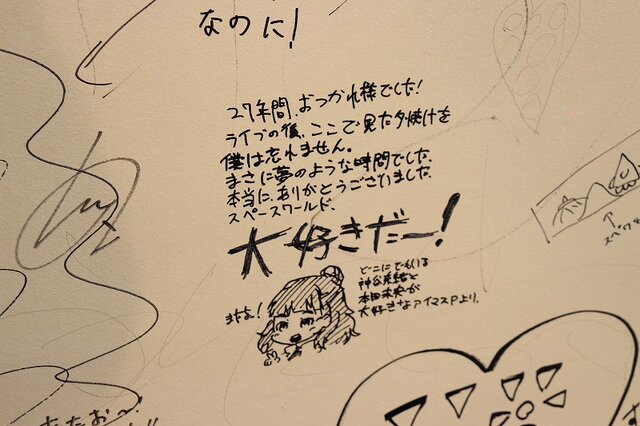 なのに!
27年間、おつかれ様でした!
ライブの後、ここで見た夕焼けを
僕は忘れません。
まさに夢のような時間でした。
本当に、ありがとうございました。
スペースワールド、
大好きだー!
またな!
どこにでもいる
神谷奈緒と
本田未央が
大好きなアイマスPより。
↑